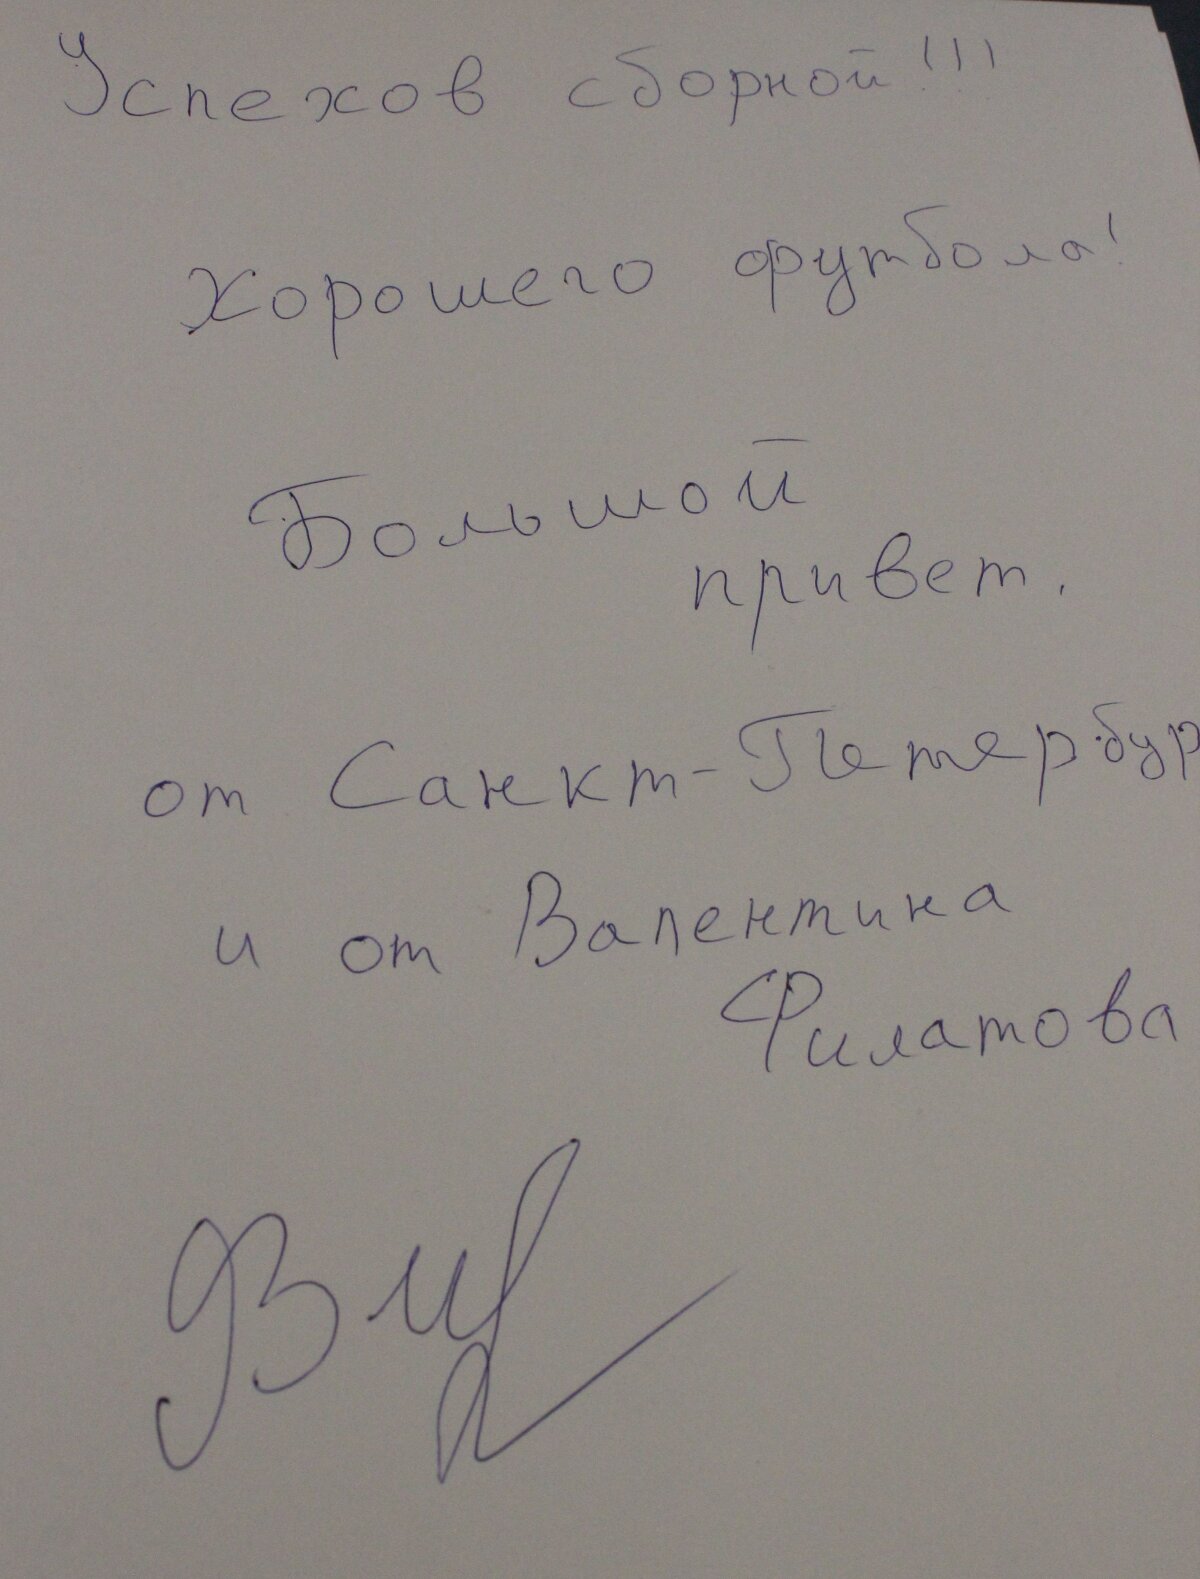 Успехов сборной!!!
Хорошего футбола!
Большой
привет.
от Санкт-Петербур
и от Валентина
Филатова